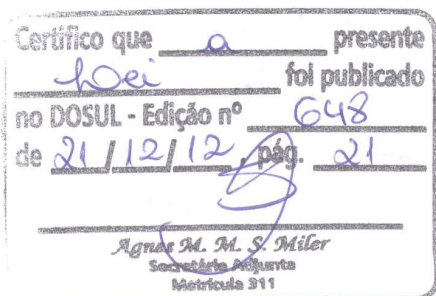 Certifico que a presente
Lei foi publicado
no DOSUL - Edição nº 648
de 21/12/12, pág. 21
Agnes M. M. S. Miler
Secretária Adjunta
Matrícula 311